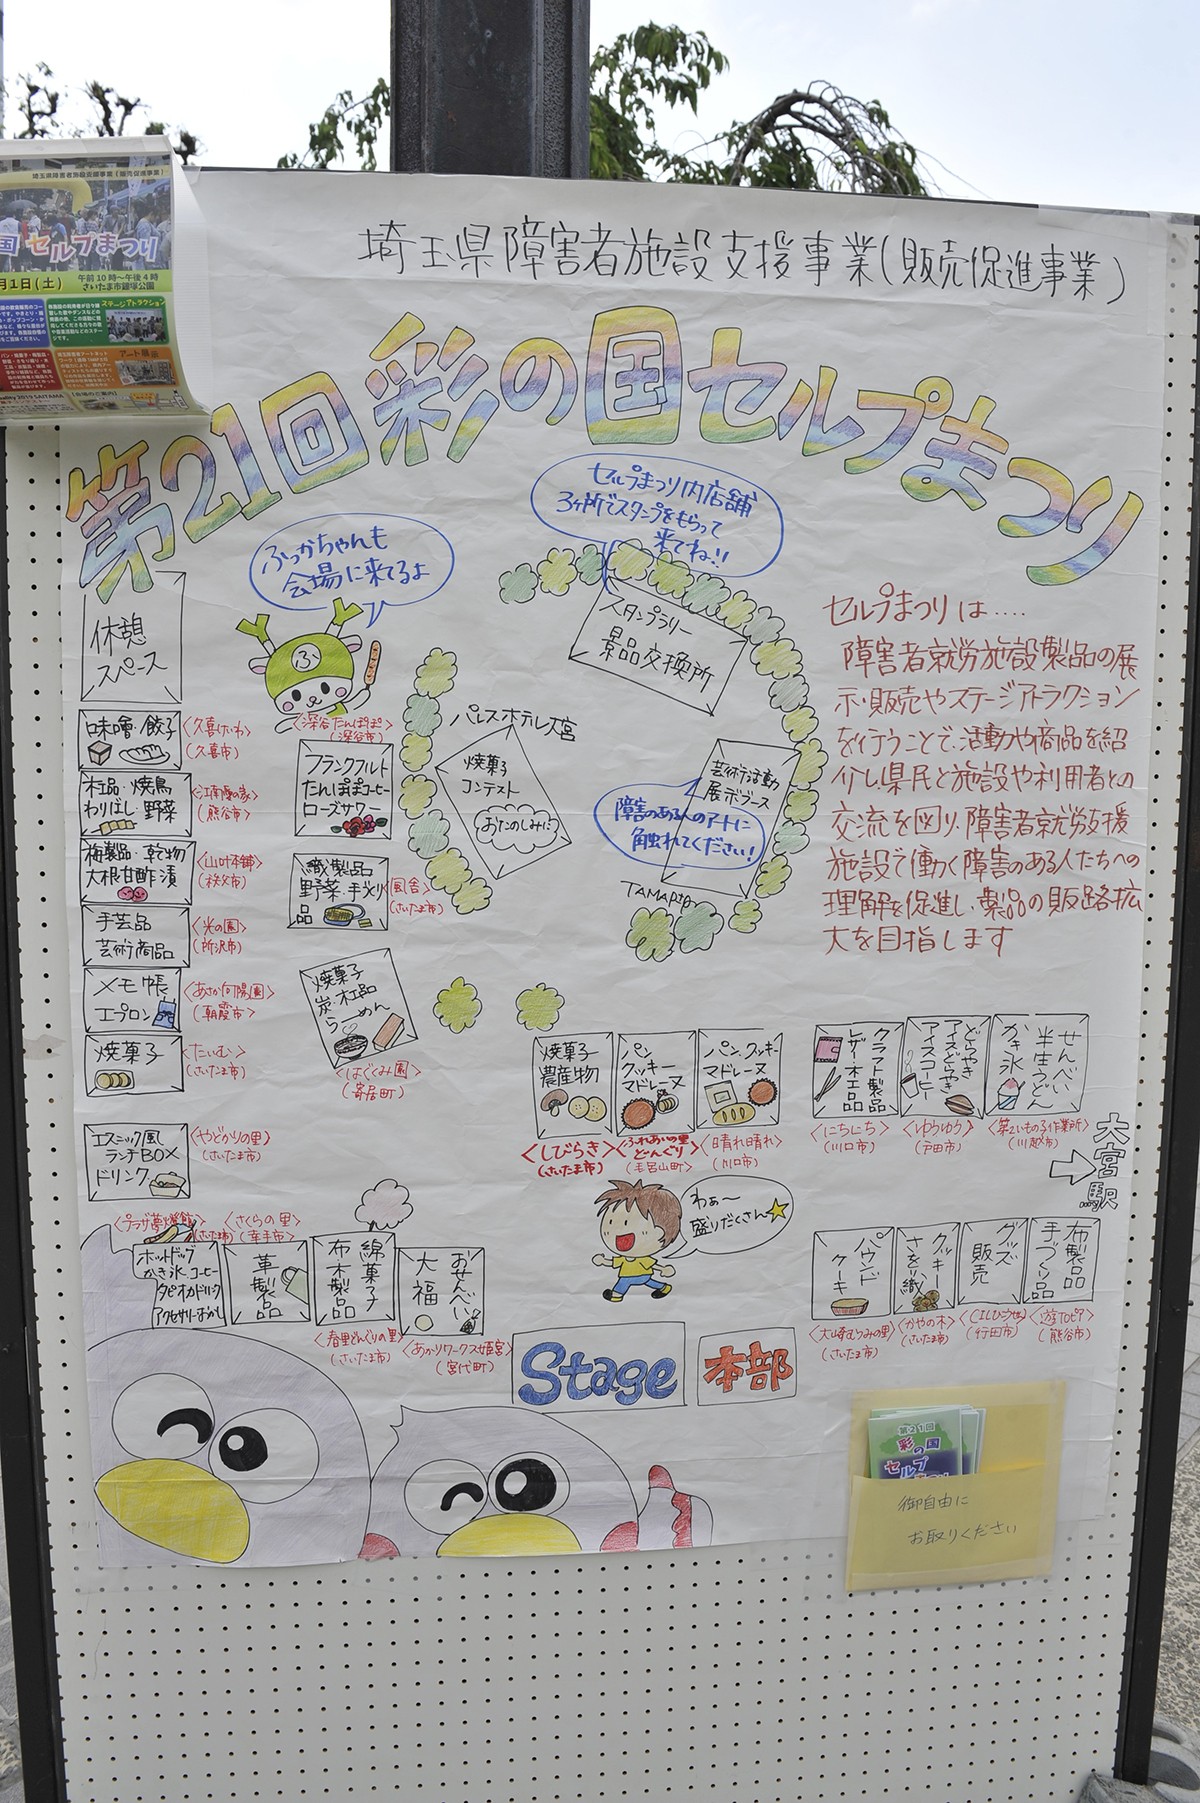 埼玉県障害者施設支援事業(販売促進事業)
国 セルプまつり
月1日(土)
午前10時〜午後4時
さいたま市鐘塚公園
ステージアトラクション
アート展
埼玉県障害者施設支援事業(販売促進事業)
第21回 彩の国セルプまつり
セルプまつり内店舗
3ヶ所でスタンプをもらって
来てね!!
ふっかちゃんも
会場に来てるよ
ふ
スタンプラリー
景品交換所
セルプまつりは.....
障害者就労施設製品の展
示・販売やステージアトラクション
を行うことで、活動や商品を紹
介し、県民と施設や利用者との
交流を図り、障害者就労支援
施設で働く障害のある人たちへの
理解を促進し、製品の販路拡
大を目指します
休憩
スペース
味噌・餃子
<久喜けいわ>
(久喜市)
木工品・焼鳥
わりばし・野菜
<江南愛の家>
(熊谷市)
梅製品・乾物
大根甘酢漬
<山叶本舗>
(秩父市)
手芸品
芸術商品
<光の園>
(所沢市)
メモ帳
エプロン
<あさか向陽園>
(朝霞市)
焼菓子
<たいむ>
(さいたま市)
エスニック風
ランチBOX
ドリンク
<やどかりの里>
(さいたま市)
<深谷たんぽぽ>
(深谷市)
フランクフルト
たんぽぽコーヒー
ローズサワー
織製品
野菜・手づくり
品
<風舎>
(さいたま市)
焼菓子
炭・木工品
らーめん
<はぐくみ園>
(寄居町)
パレスホテル大宮
焼菓子
コンテスト
おたのしみに
芸術活動
展示ブース
障害のある人のアートに
触れてください!
TAMAP±0
焼菓子
農産物
<しびらき>
(さいたま市)
パン
クッキー
マドレーヌ
<ふれあいの里
どんぐり>
(毛呂山町)
パン、クッキー
マドレーヌ
<晴れ晴れ>
(川口市)
クラフト製品
レザー・木工品
<にちにち>
(川口市)
どらやき
アイスどらやき
アイスコーヒー
<ゆうゆう>
(戸田市)
せんべい
半生うどん
かき氷
<第2いもの子作業所>
(川越市)
大宮駅
わぁ〜
盛りだくさん
<プラザ夢燈館>
(さいたま市)
ホットドッグ
かき氷、コーヒー
タピオカドリンク
アクセサリーおかし
<さくらの里>
(幸手市)
革製品
綿菓子
布・木製品
<春里どんぐりの里>
(さいたま市)
おせんべい
大福
<あかりワークス姫宮>
(宮代町)
Stage
本部
パウンド
ケーキ
<大崎むつみの里>
(さいたま市)
クッキー
さをり織
<かやの木>
(さいたま市)
グッズ
販売
(行田市)
布製品
手づくり品
<遊TOピア>
(熊谷市)
第21回
彩の国
セルプ
まつり
御自由に
お取りください